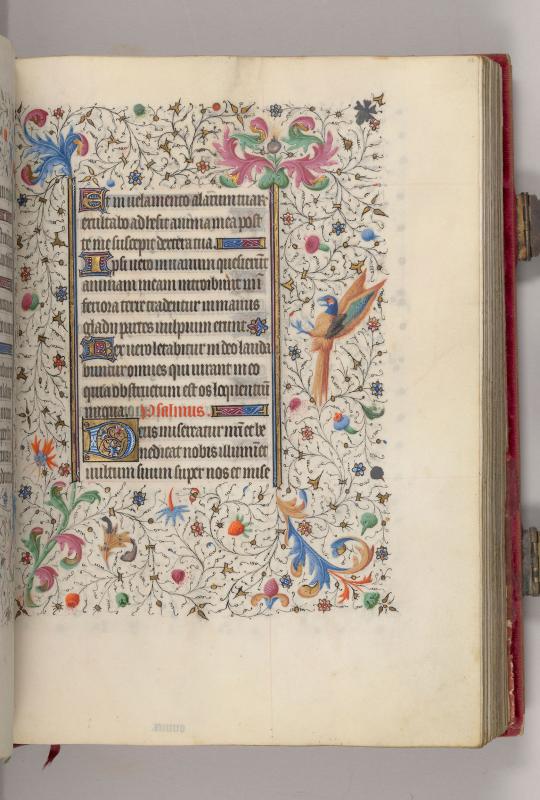 Et in velamento alarum tuar
exultabo adhesit anima mea post
te me suscepit dextera tua.
Ipsi vero in vanum quesierunt
animam meam introibunt in
feriora terre tradentur in manus
gladii partes vulpium erunt
Rex vero letabitur in deo lauda
buntur omnes qui iurant in eo
quia obstructum est os loquentium
iniqua. Psalmus.
Deus misereatur nri et be
nedicat nobis illuminet
vultum suum super nos et mise